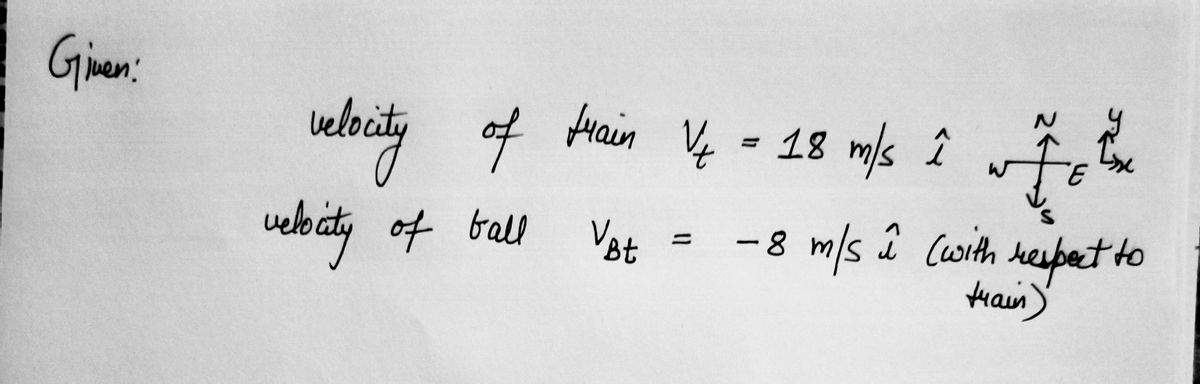 Given:
velocity of train Vt = 18 m/s î
N
W E
S
y
x
velocity of ball VBt = -8 m/s î (with respect to
train)